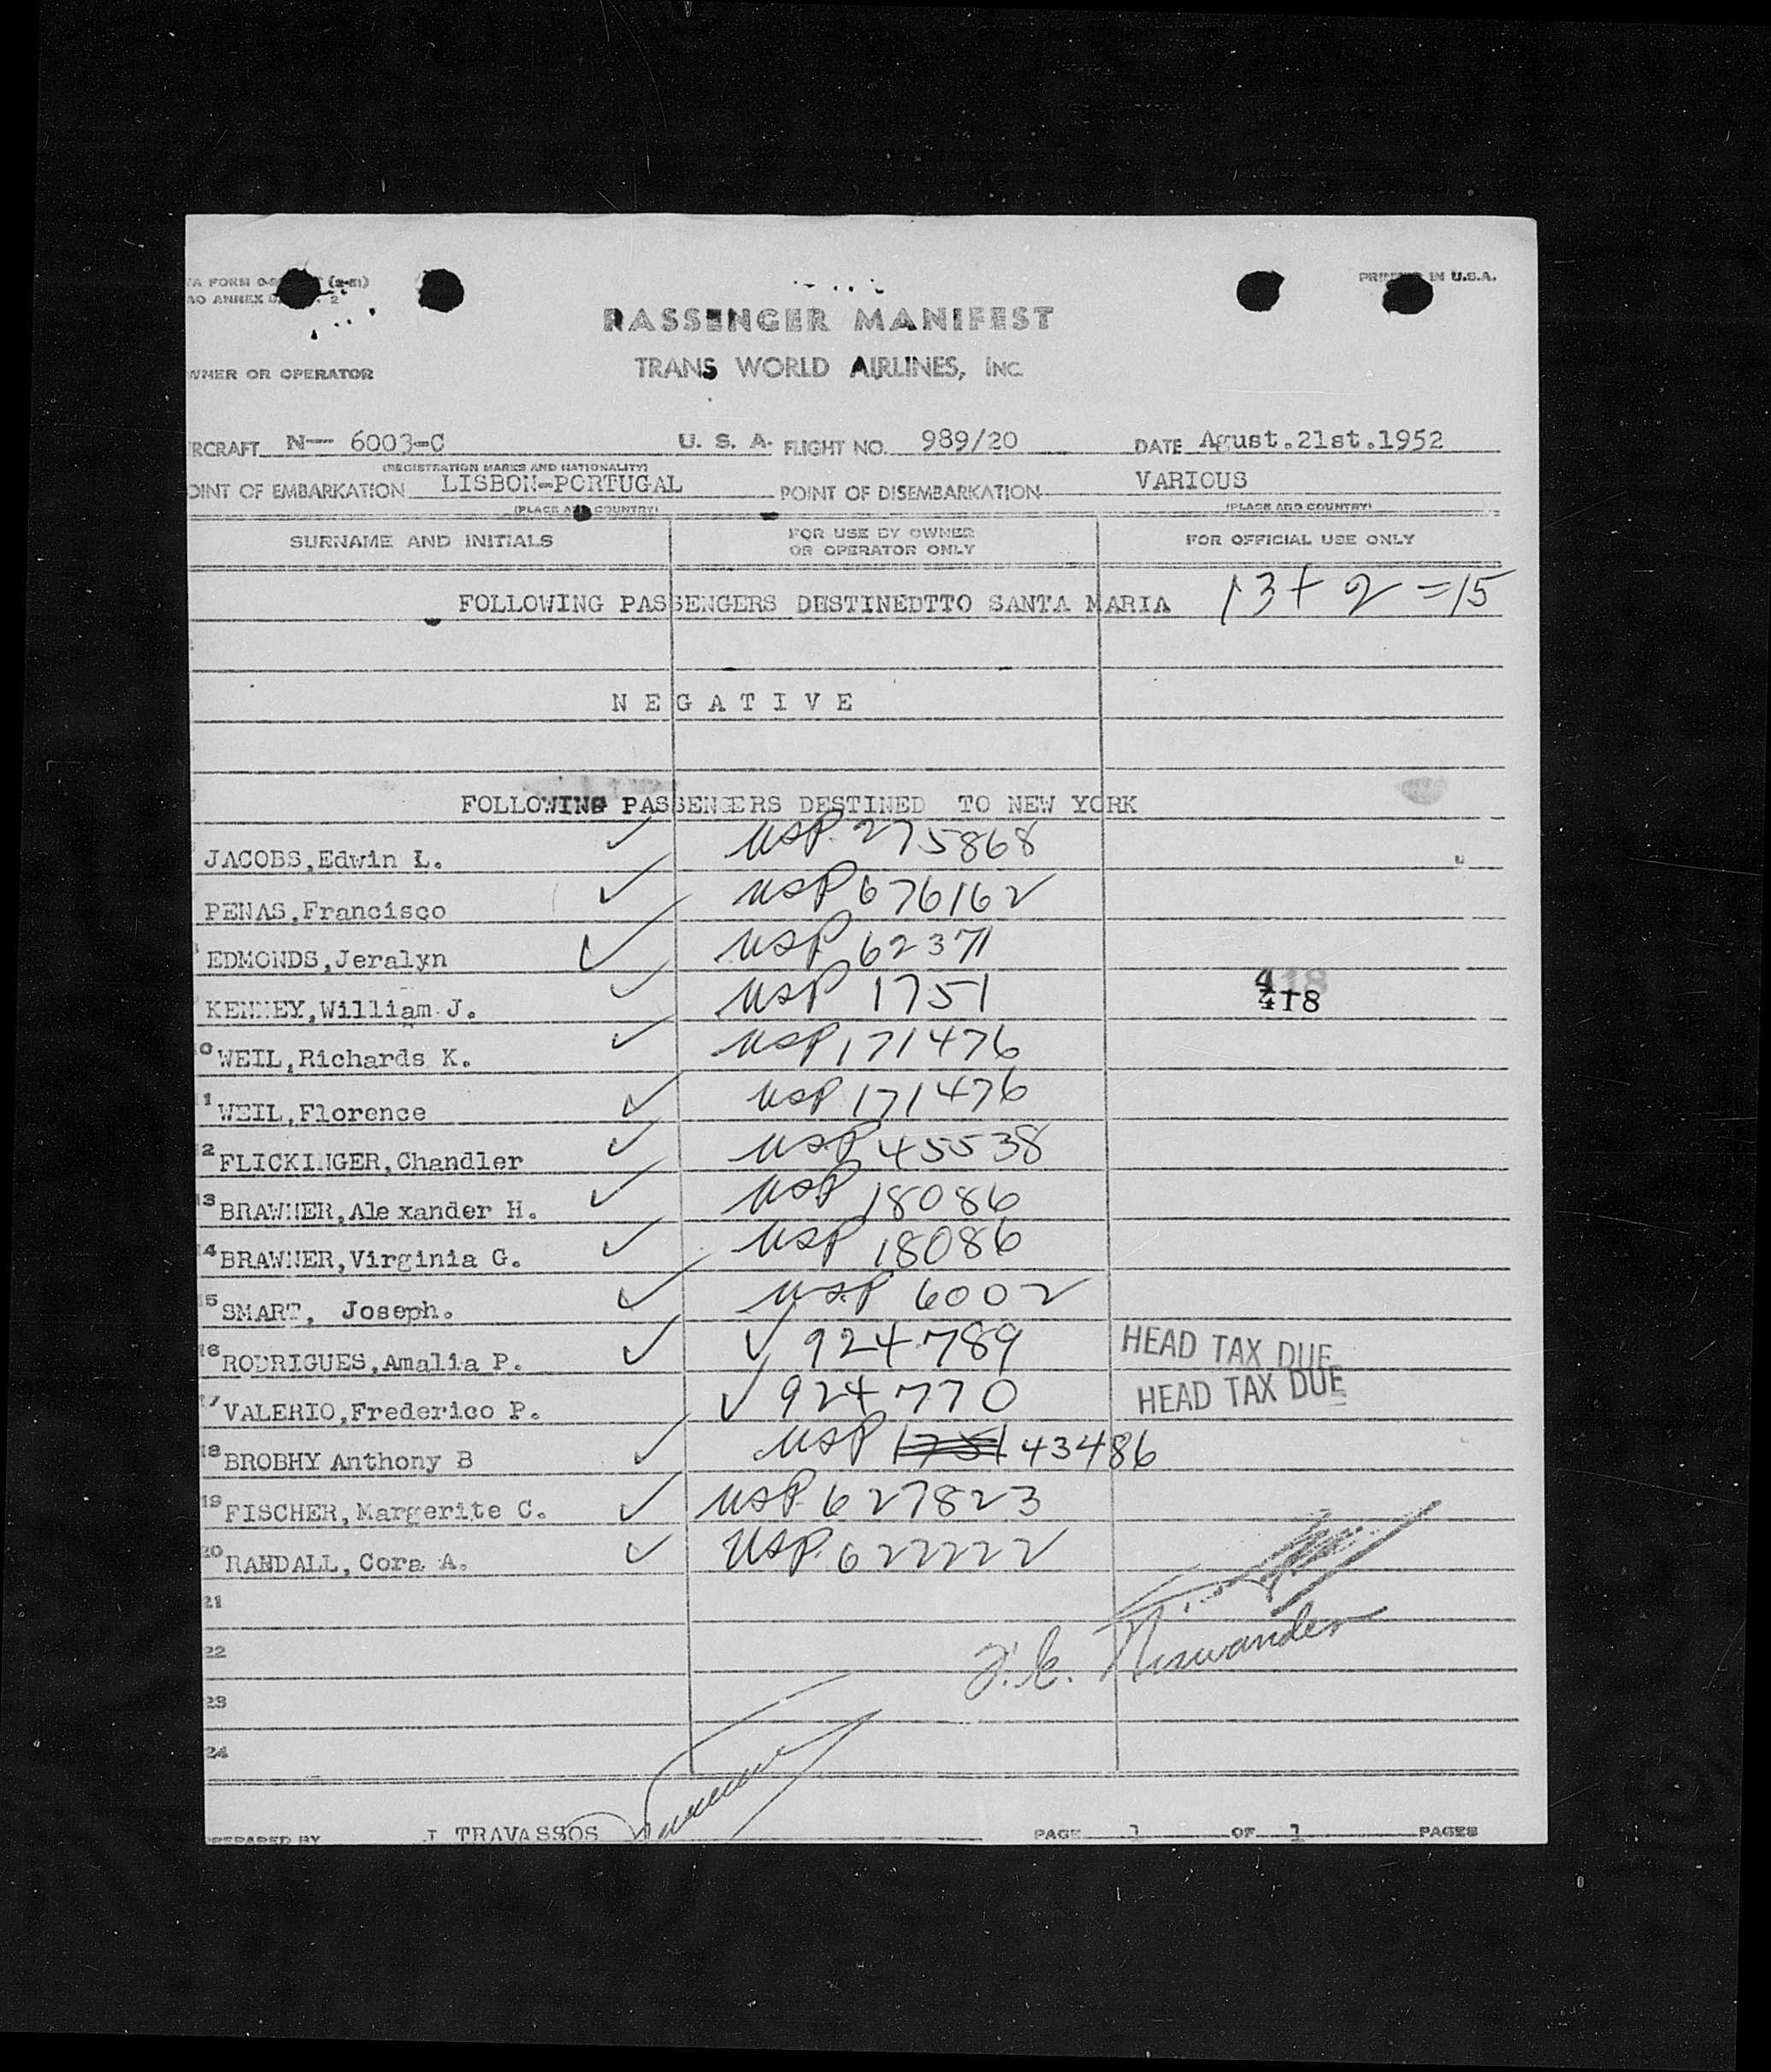 WA FORM (2-51) PRINTED IN U.S.A.
AO ANNEX 2
PASSENGER MANIFEST
WNER OR OPERATOR TRANS WORLD AIRLINES, INC.
RCRAFT N— 6003-C U. S. A. FLIGHT NO. 989/20 DATE Agust.21st.1952
(REGISTRATION MARKS AND NATIONALITY)
OINT OF EMBARKATION LISBON-PORTUGAL POINT OF DISEMBARKATION VARIOUS
(PLACE AND COUNTRY) (PLACE AND COUNTRY)
SURNAME AND INITIALS FOR USE BY OWNER OR OPERATOR ONLY FOR OFFICIAL USE ONLY
FOLLOWING PASSENGERS DESTINEDTTO SANTA MARIA 13 + 2 = 15
N E G A T I V E
FOLLOWING PASSENGERS DESTINED TO NEW YORK
JACOBS,Edwin L. ✓ USP. 275868
PENAS,Francisco ✓ USP 676162
EDMONDS,Jeralyn ✓ USP 62371
KENNEY,William J. ✓ USP 1751 418
418
10 WEIL,Richards K. ✓ USP 171476
11 WEIL,Florence ✓ USP 171476
12 FLICKINGER,Chandler ✓ USP 45538
13 BRAWNER,Ale xander H. ✓ USP 18086
14 BRAWNER,Virginia G. ✓ USP 18086
15 SMART, Joseph. ✓ USP 6002
16 RODRIGUES,Amalia P. ✓ ✓ 924789 HEAD TAX DUE
17 VALERIO,Frederico P. ✓ 924770 HEAD TAX DUE
18 BROBHY Anthony B ✓ USP 1751 43486
19 FISCHER,Margerite C. ✓ USP. 627823
20 RANDALL,Cora A. ✓ USP. 622222
21
22
23
24
PREPARED BY J TRAVASSOS PAGE 1 OF 1 PAGES